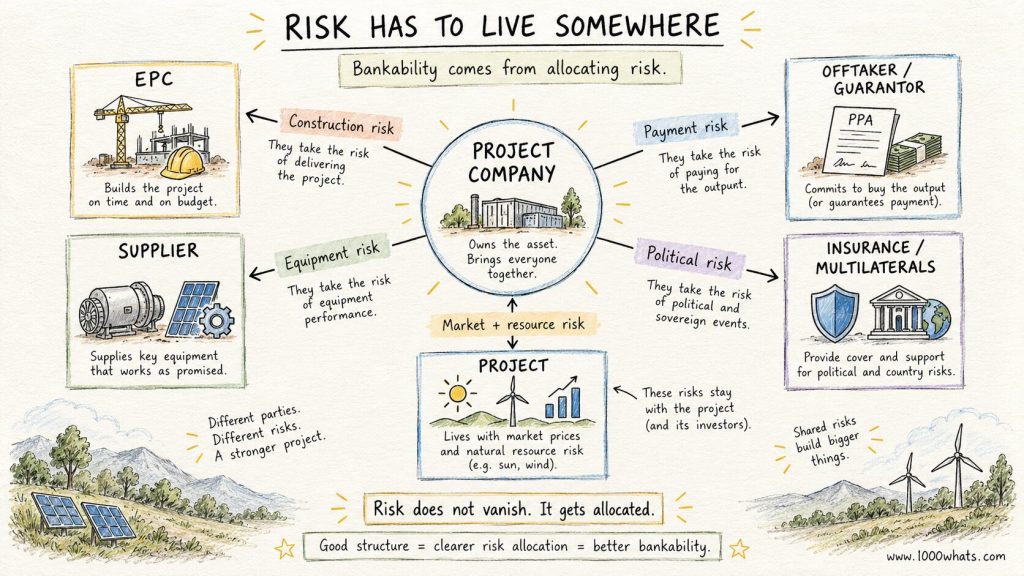 RISK HAS TO LIVE SOMEWHERE
Bankability comes from allocating risk.
EPC
Builds the project
on time and on budget.
Construction risk
They take the risk
of delivering
the project.
PROJECT
COMPANY
Owns the asset.
Brings everyone
together.
Payment risk
They take the risk
of paying for
the outpunt.
OFFTAKER /
GUARANTOR
PPA
Commits to buy the output
(or guarantees payment).
SUPPLIER
Supplies key equipment
that works as promised.
Equipment risk
They take the risk
of equipment
performance.
Political risk
They take the risk
of political and
sovereign events.
INSURANCE /
MULTILATERALS
Provide cover and support
for political and country risks.
Market + resource risk
PROJECT
Lives with market prices
and natural resource risk
(e.g. sun, wind).
These risks stay
with the project
(and its investors).
Different parties.
Different risks.
A stronger project.
Shared risks
build bigger
things.
Risk does not vanish. It gets allocated.
Good structure = clearer risk allocation = better bankability.
www.1000whats.com